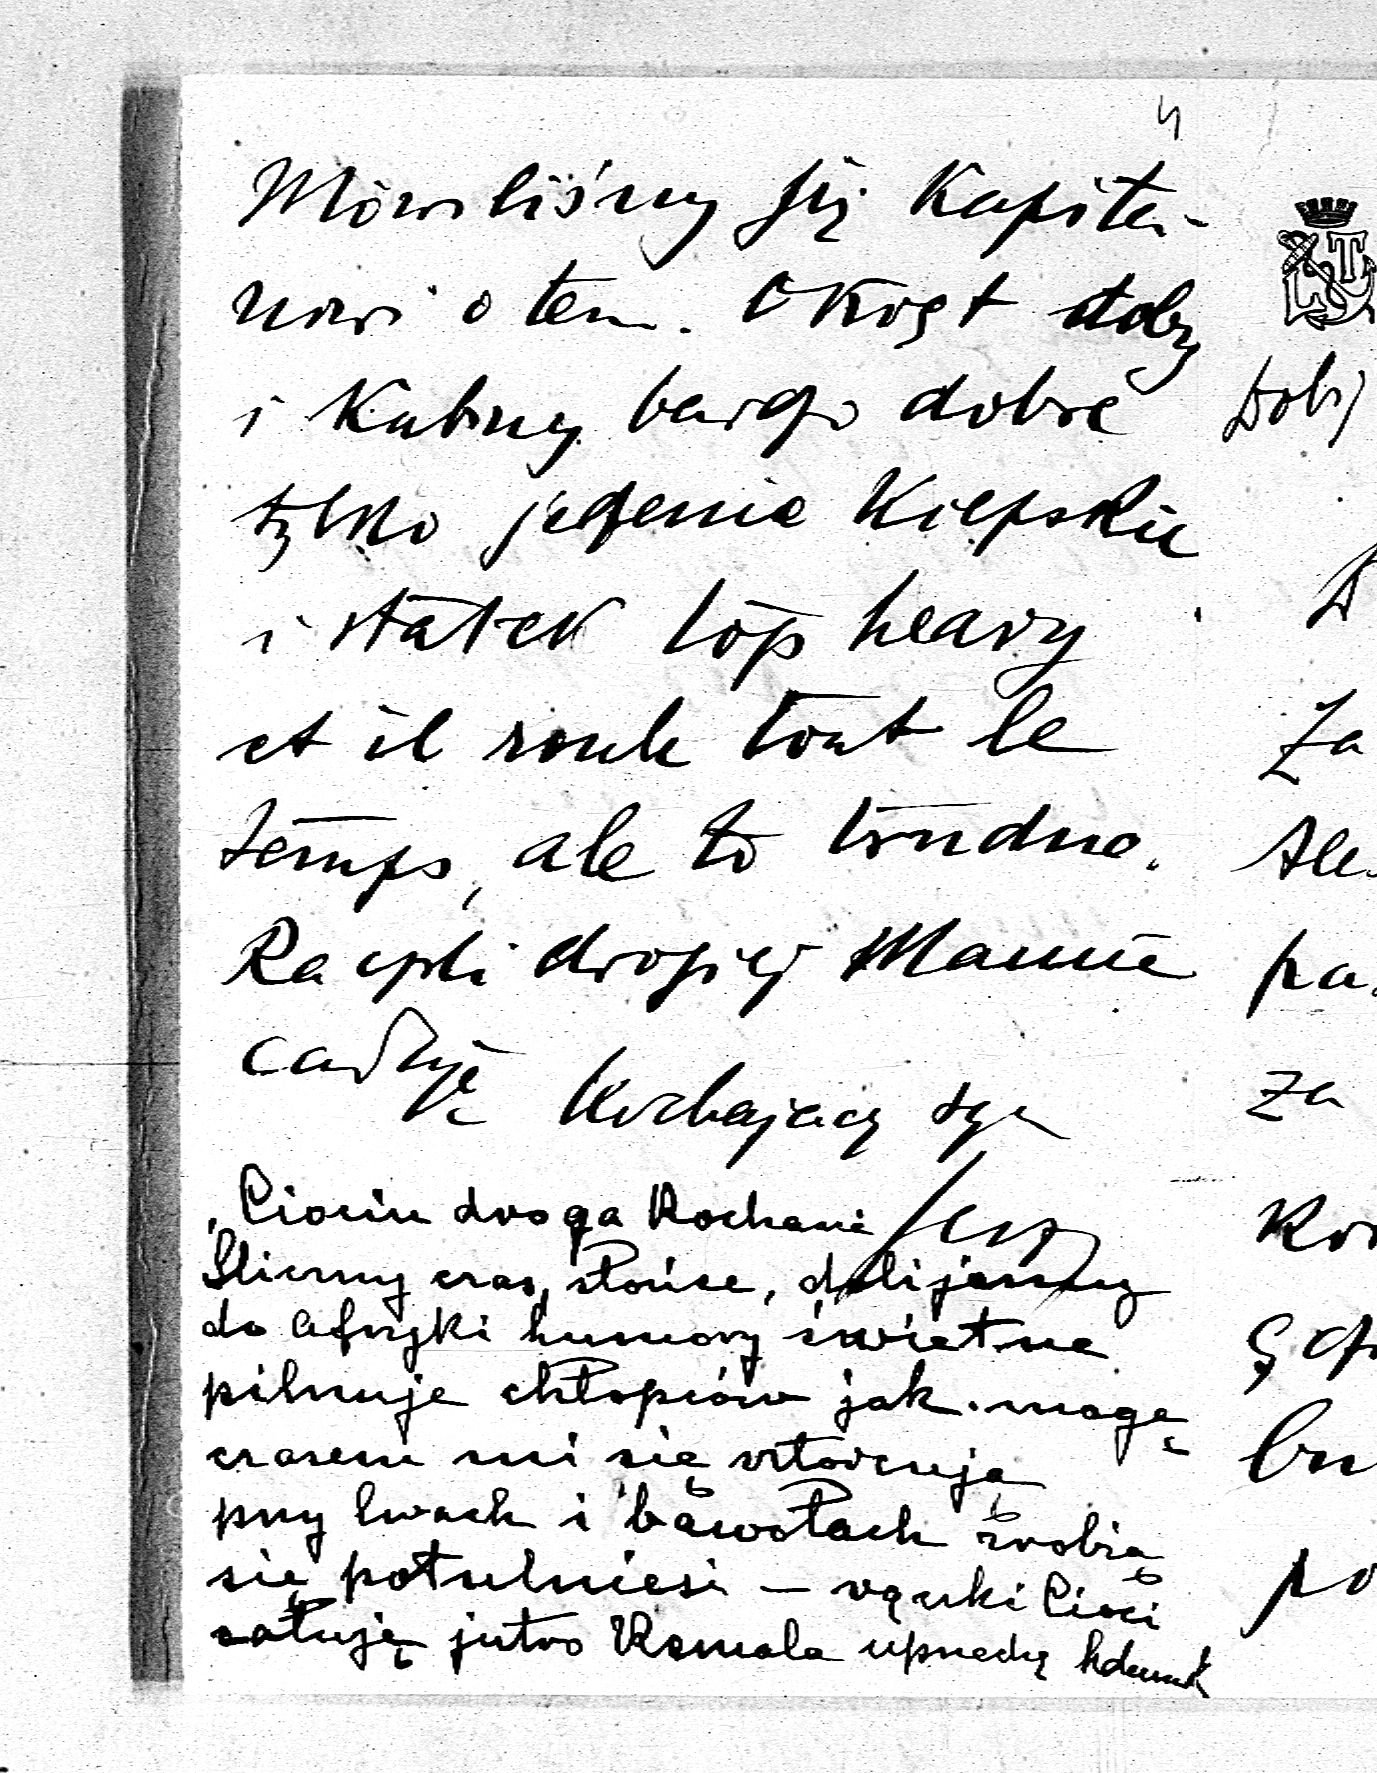 4
Mówiliśmy się Kapita-
nowi o tem. Okręt duży
i Kabiny bardzo dobre
tylko jedzenie Kiepskie
i statek top heavy
et il roule tout le
temps, ale to trudno.
Rączki drogiej Mamie
całuję Kochający syn
Ciociu droga Kochana
Śliczny czas, słońce, dobijamy
do Afryki humory świetne
pilnuję chłopców jak mogę
czasem mi się
przy lwach i bawołach zrobią
się potulniejsi — rączki Cioci
całuję jutro
LST
Dob
Za
Ale
pa
za
Ko
bu
po